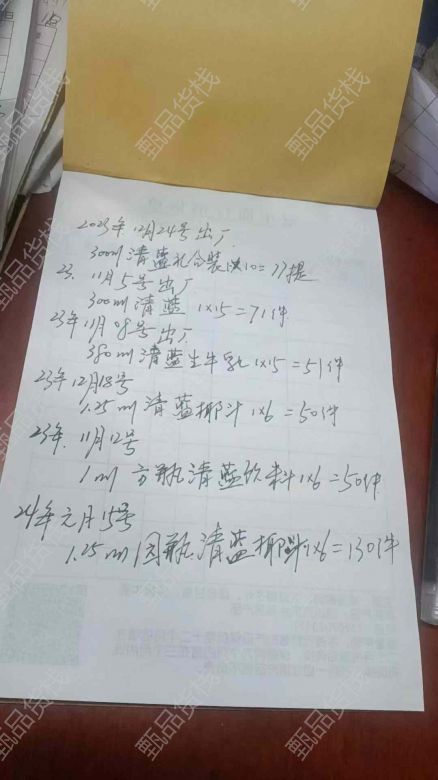 2023年12月24号出厂
300ml清蓝礼合装1×10=77提
23.11月5号出厂
300ml清蓝1×15=71件
23年11月8号出厂
380ml清蓝生牛乳1×15=51件
23年12月18号
1.25ml清蓝椰汁1×6=50件
23年.11月12号
1ml方瓶清蓝饮料1×6=50件
24年元月15号
1.25ml圆瓶清蓝椰汁1×6=130件
甄品货栈